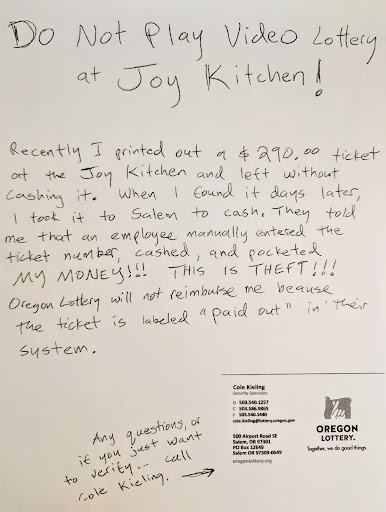 Do Not Play Video Lottery
at Joy Kitchen!
Recently I printed out a $290.00 ticket
at the Joy Kitchen and left without
cashing it. When I found it days later,
I took it to Salem to cash. They told
me that an employee manually entered the
ticket number, cashed, and pocketed
MY MONEY!!! THIS IS THEFT!!!
Oregon Lottery will not reimburse me beause
the ticket is labeled "paid out" in their
system.
Any questions, or
if you just want
to verify... call
Cole Kieling.
Cole Kieling
Security Specialist
O 503.540.1257
C 503.586.9865
F 503.540.1440
cole.kieling@lottery.oregon.gov
500 Airport Road SE
Salem, OR 97301
PO Box 12649
Salem OR 97309-0649
oregonlottery.org
OREGON
LOTTERY.
Together, we do good things.